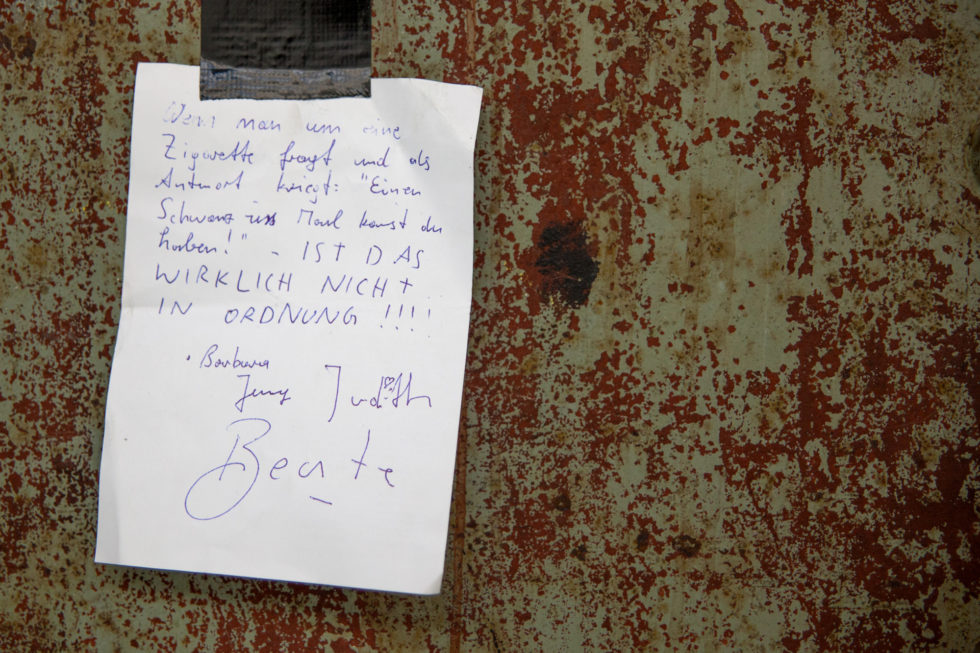 Wenn man um eine
Zigarette fragt und als
Antwort kriegt: "Einen
Schwanz ins Maul kannst du
haben!" - IST DAS
WIRKLICH NICHT
IN ORDNUNG !!!!
· Barbara
Jenny Judith
Beate